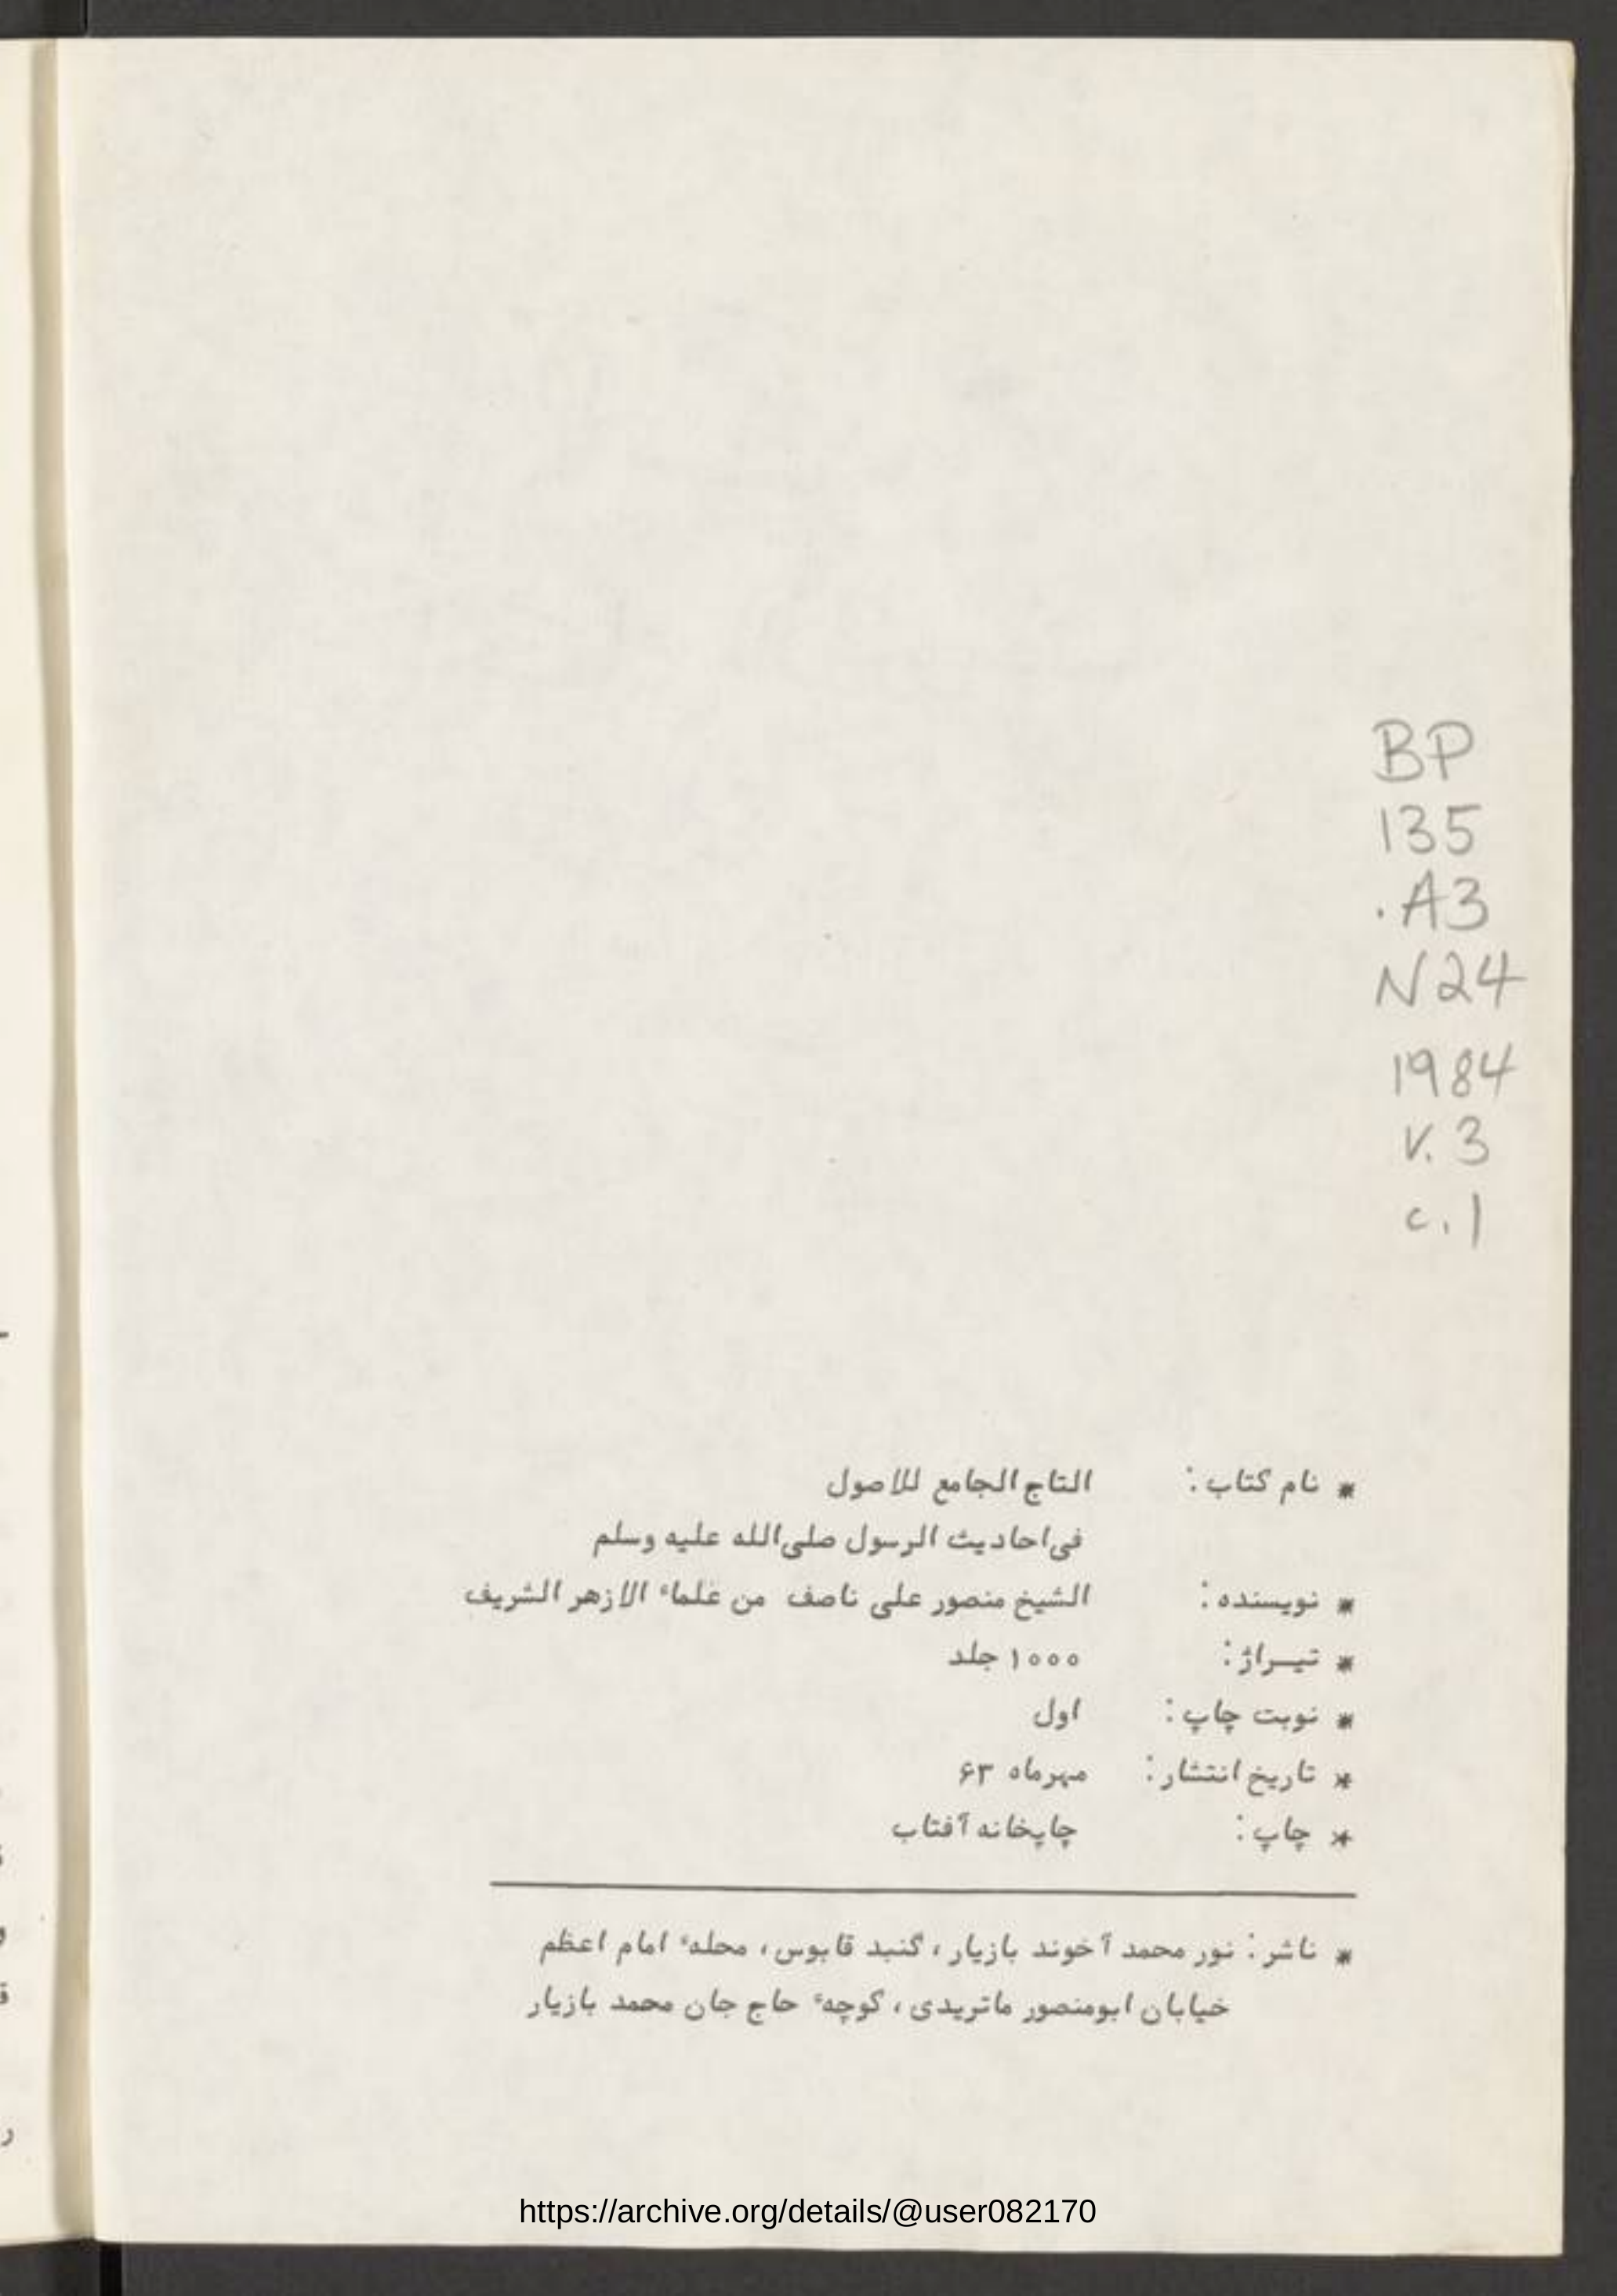 BP
135
.A3
N24
1984
v. 3
c. 1
* نام کتاب : التاج الجامع للاصول
فی‌احادیث الرسول صلی‌الله علیه وسلم
* نویسنده : الشیخ منصور علی ناصف من علماء الازهر الشریف
* تیـراژ : ۱۰۰۰ جلد
* نوبت چاپ : اول
* تاریخ انتشار : مهرماه ۶۳
* چاپ : چاپخانه آفتاب
* ناشر : نور محمد آخوند بازیار ، گنبد قابوس ، محلهٔ امام اعظم
خیابان ابومنصور ماتریدی ، کوچهٔ حاج جان محمد بازیار
https://archive.org/details/@user082170